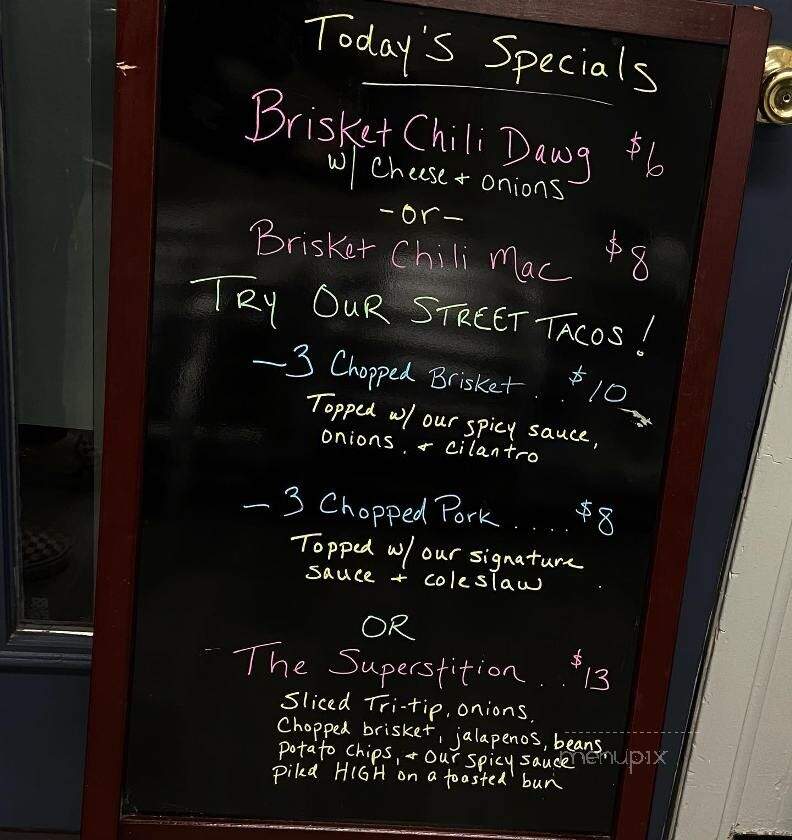 Today's Specials
Brisket Chili Dawg $6
w/ Cheese + onions
-or-
Brisket Chili Mac $8
TRY OUR STREET TACOS!
-3 Chopped Brisket . . $10
Topped w/ our spicy sauce,
onions. + cilantro
- 3 Chopped Pork ..... $8
Topped w/ our signature
sauce + coleslaw
OR
- The Superstition . . $13
Sliced Tri-tip, onions,
Chopped brisket, jalapenos, beans,
potato chips, + our spicy sauce
piled HIGH on a toasted bun
menupix